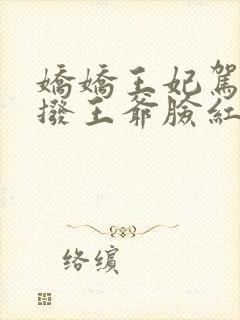 嬌嬌王妃駕
撥王爺臉紅
络缤